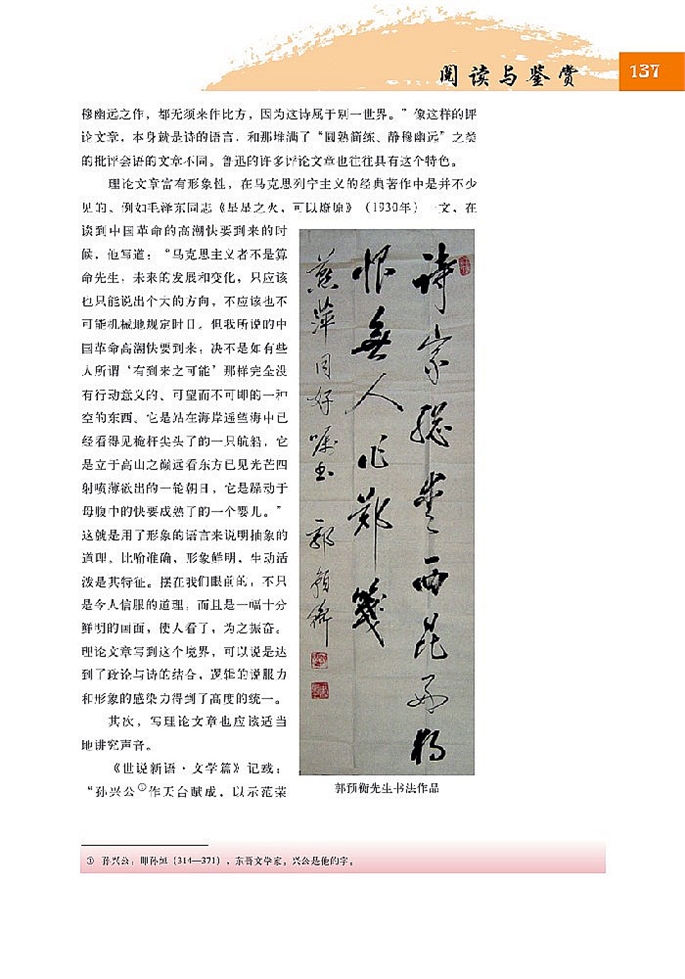 阅读与鉴赏
137
穆幽远之作，都无须来作比方，因为这诗属于别一世界。”像这样的评
论文章，本身就是诗的语言，和那堆满了“圆熟简练、静穆幽远”之类
的批评套语的文章不同。鲁迅的许多评论文章也往往具有这个特色。
理论文章富有形象性，在马克思列宁主义的经典著作中是并不少
见的。例如毛泽东同志《星星之火，可以燎原》（1930年）一文，在
谈到中国革命的高潮快要到来的时
候，他写道：“马克思主义者不是算
命先生，未来的发展和变化，只应该
也只能说出个大的方向，不应该也不
可能机械地规定时日。但我所说的中
国革命高潮快要到来，决不是如有些
人所谓‘有到来之可能’那样完全没
有行动意义的、可望而不可即的一种
空的东西。它是站在海岸遥望海中已
经看得见桅杆尖头了的一只航船，它
是立于高山之巅远看东方已见光芒四
射喷薄欲出的一轮朝日，它是躁动于
母腹中的快要成熟了的一个婴儿。”
这就是用了形象的语言来说明抽象的
道理。比喻准确、形象鲜明、生动活
泼是其特征。摆在我们眼前的，不只
是令人信服的道理，而且是一幅十分
鲜明的画面，使人看了，为之振奋。
理论文章写到这个境界，可以说是达
到了政论与诗的结合，逻辑的说服力
和形象的感染力得到了高度的统一。
其次，写理论文章也应该适当
地讲究声音。
《世说新语·文学篇》记载：
“孙兴公①作天台赋成，以示范荣
詩家總愛西昆好獨
恨無人作鄭箋
燕萍同好囑書 郭預衡
郭预衡先生书法作品
① 孙兴公：即孙绰（314—371），东晋文学家。兴公是他的字。